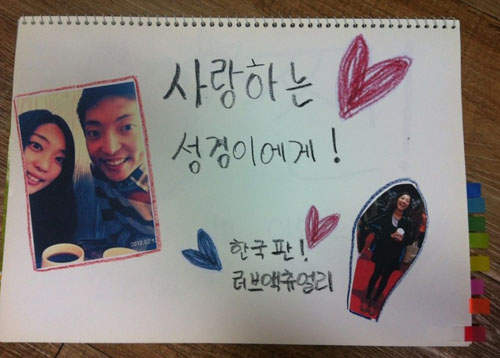 사랑하는
성경이에게!
한국판!
러브액츄얼리